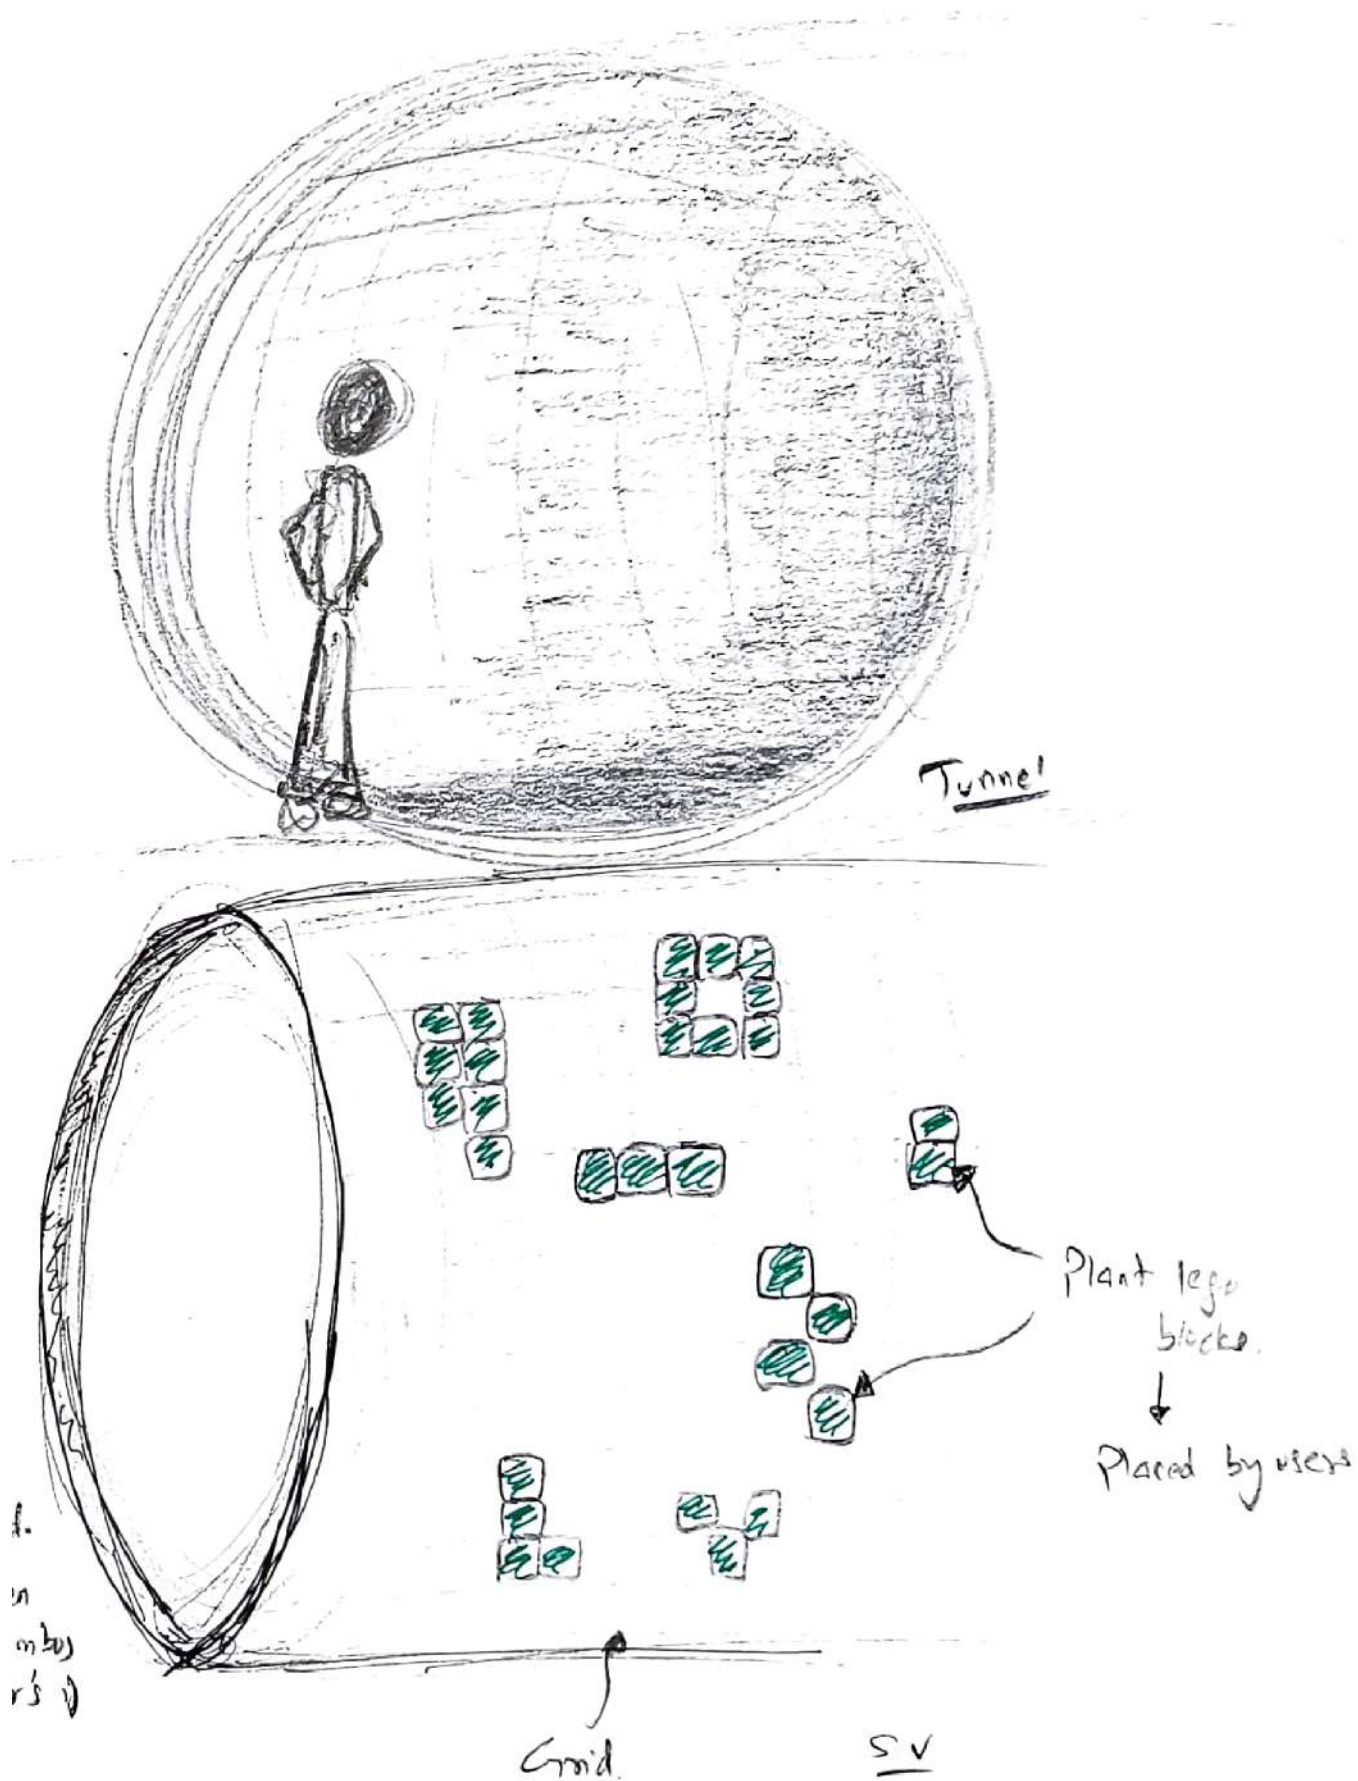 Tunnel
Plant lego
blocks.
Placed by users
Grid.
SV